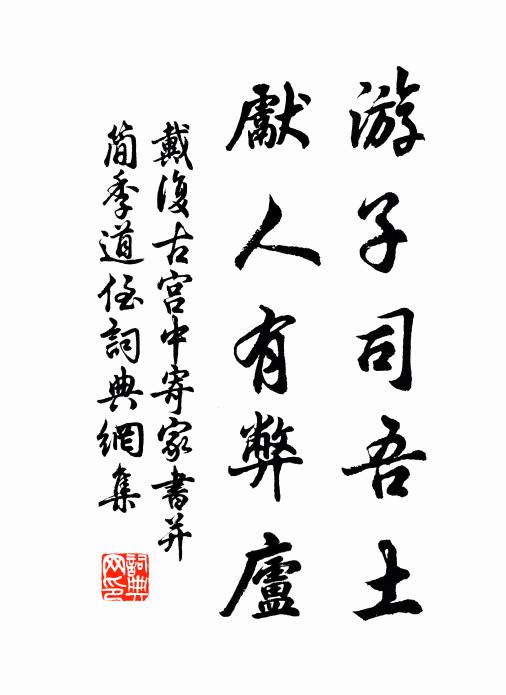 游子司吾土
獻人有弊廬
戴復古宮中寄家書并
簡季道侄詞典網集
詞典
网印